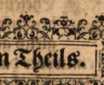 n Theils.